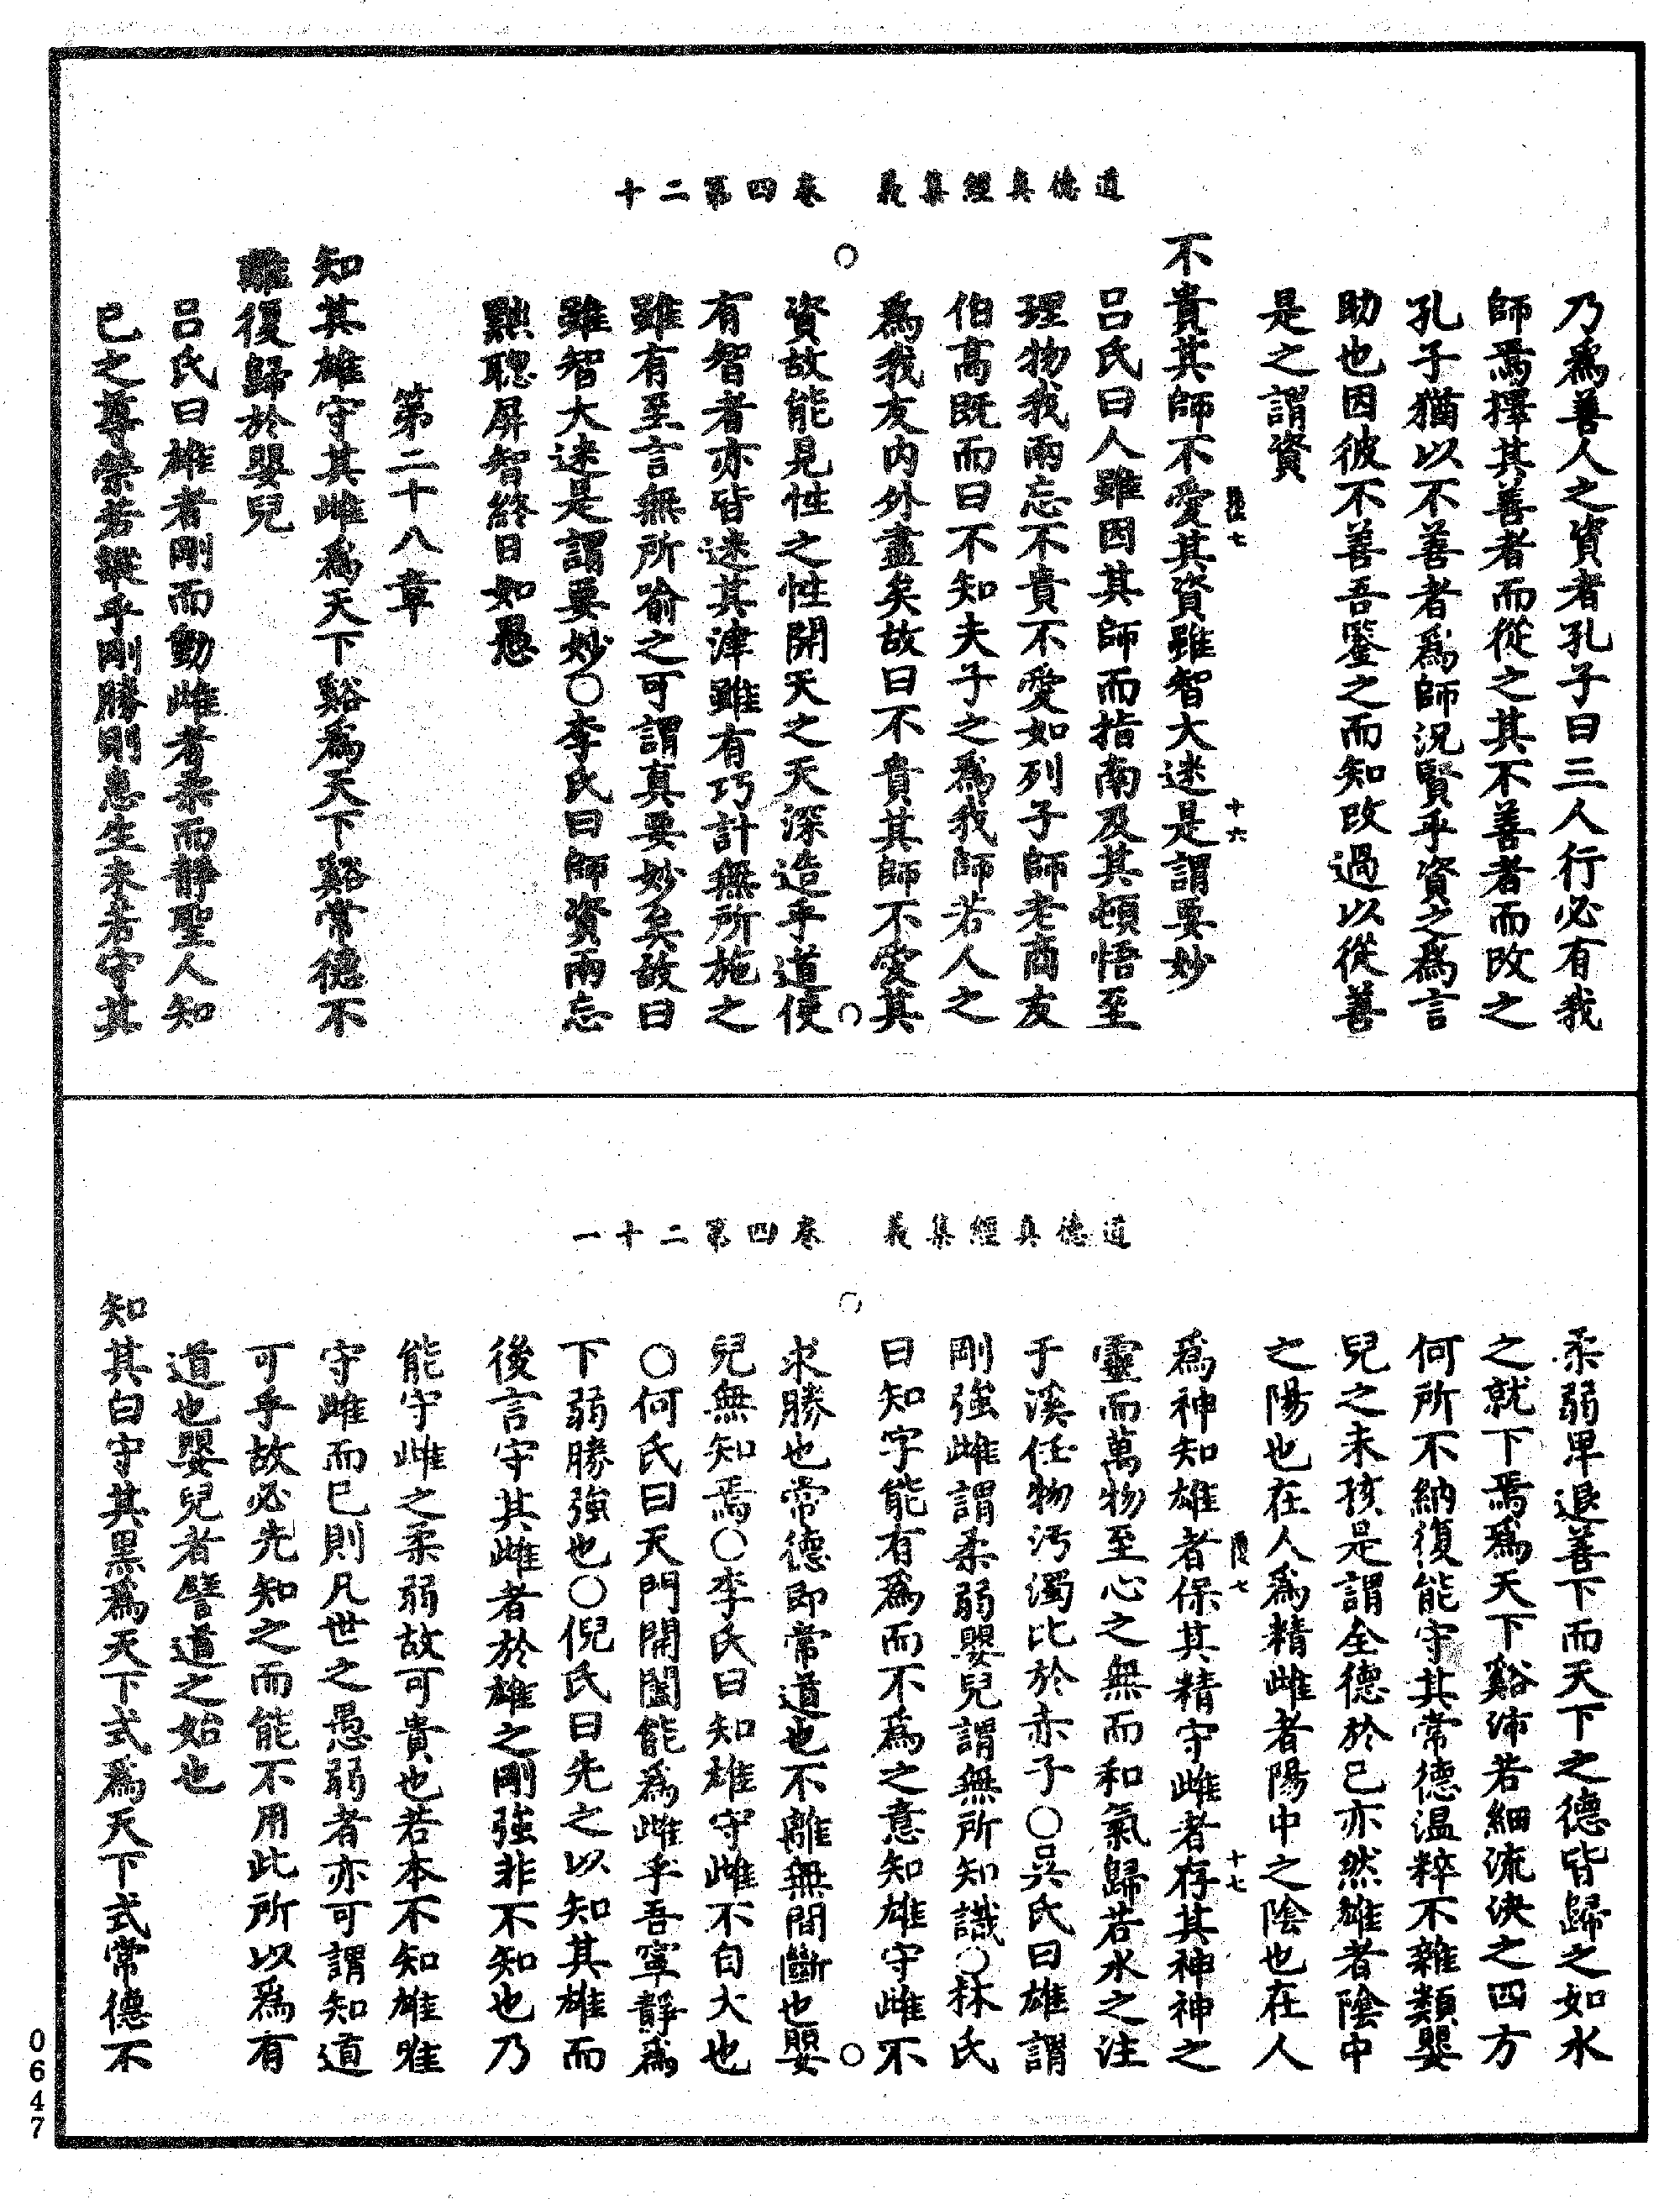 道德真經集義　卷四第二十
乃爲善人之資者孔子曰三人行必有我
師焉擇其善者而從之其不善者而改之
孔子猶以不善者爲師況賢乎資之爲言
助也因彼不善吾鑒之而知改過以從善
是之謂資
十六
不貴其師不愛其資雖智大迷是謂要妙
呂氏曰人雖因其師而指南及其頓悟至
理物我兩忘不貴不愛如列子師老商友
伯高既而曰不知夫子之爲我師若人之
爲我友内外盡矣故曰不貴其師不愛其
資故能見性之性開天之天深造乎道使
有智者亦皆迷其津雖有巧計無所施之
雖有至言無所喻之可謂真要妙矣故曰
雖智大迷是謂要妙○李氏曰師資兩忘
黜聰屏智終日如愚
第二十八章
知其雄守其雌爲天下谿爲天下谿常德不
離復歸於嬰兒
呂氏曰雄者剛而動雌者柔而靜聖人知
已之尊榮若縱乎剛勝則患生未若守其
道德真經集義　卷四第二十一
柔弱卑退善下而天下之德皆歸之如水
之就下焉爲天下谿沛若細流決之四方
何所不納復能守其常德温粹不雜類嬰
兒之未孩是謂全德於已亦然雄者陰中
之陽也在人爲精雌者陽中之陰也在人
十七
爲神知雄者保其精守雌者存其神神之
靈而萬物至心之無而和氣歸若水之注
于溪任物汚濁比於赤子○吳氏曰雄謂
剛強雌謂柔弱嬰兒謂無所知識○林氏
曰知字能有爲而不爲之意知雄守雌不
求勝也常德即常道也不離無間斷也嬰
兒無知焉○李氏曰知雄守雌不自大也
○何氏曰天門開闔能爲雌乎吾寧靜爲
下弱勝強也○倪氏曰先之以知其雄而
後言守其雌者於雄之剛強非不知也乃
能守雌之柔弱故可貴也若本不知雄雖
守雌而已則凡世之愚弱者亦可謂知道
可乎故必先知之而能不用此所以爲有
道也嬰兒者譬道之始也
知其白守其黑爲天下式爲天下式常德不
0647